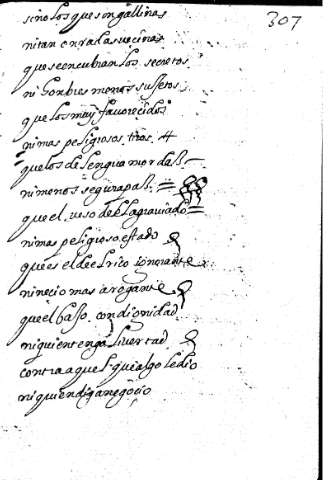 307
sino los que son gallinas
ni tan onrradas vecinas
que se encubran los secretos
ni honbres menos sujetos
que los muy favorecidos
ni mas peligrosos tiros
que los de lengua mordaz
ni menos segura paz
que el veso del agraviado
ni mas peligroso estado
que es el de el rico ignorante
ni necio mas arogante
que el baso con dignidad
ni quien tenga livertad
contra aquel que algo le dio
ni quien diga negocio